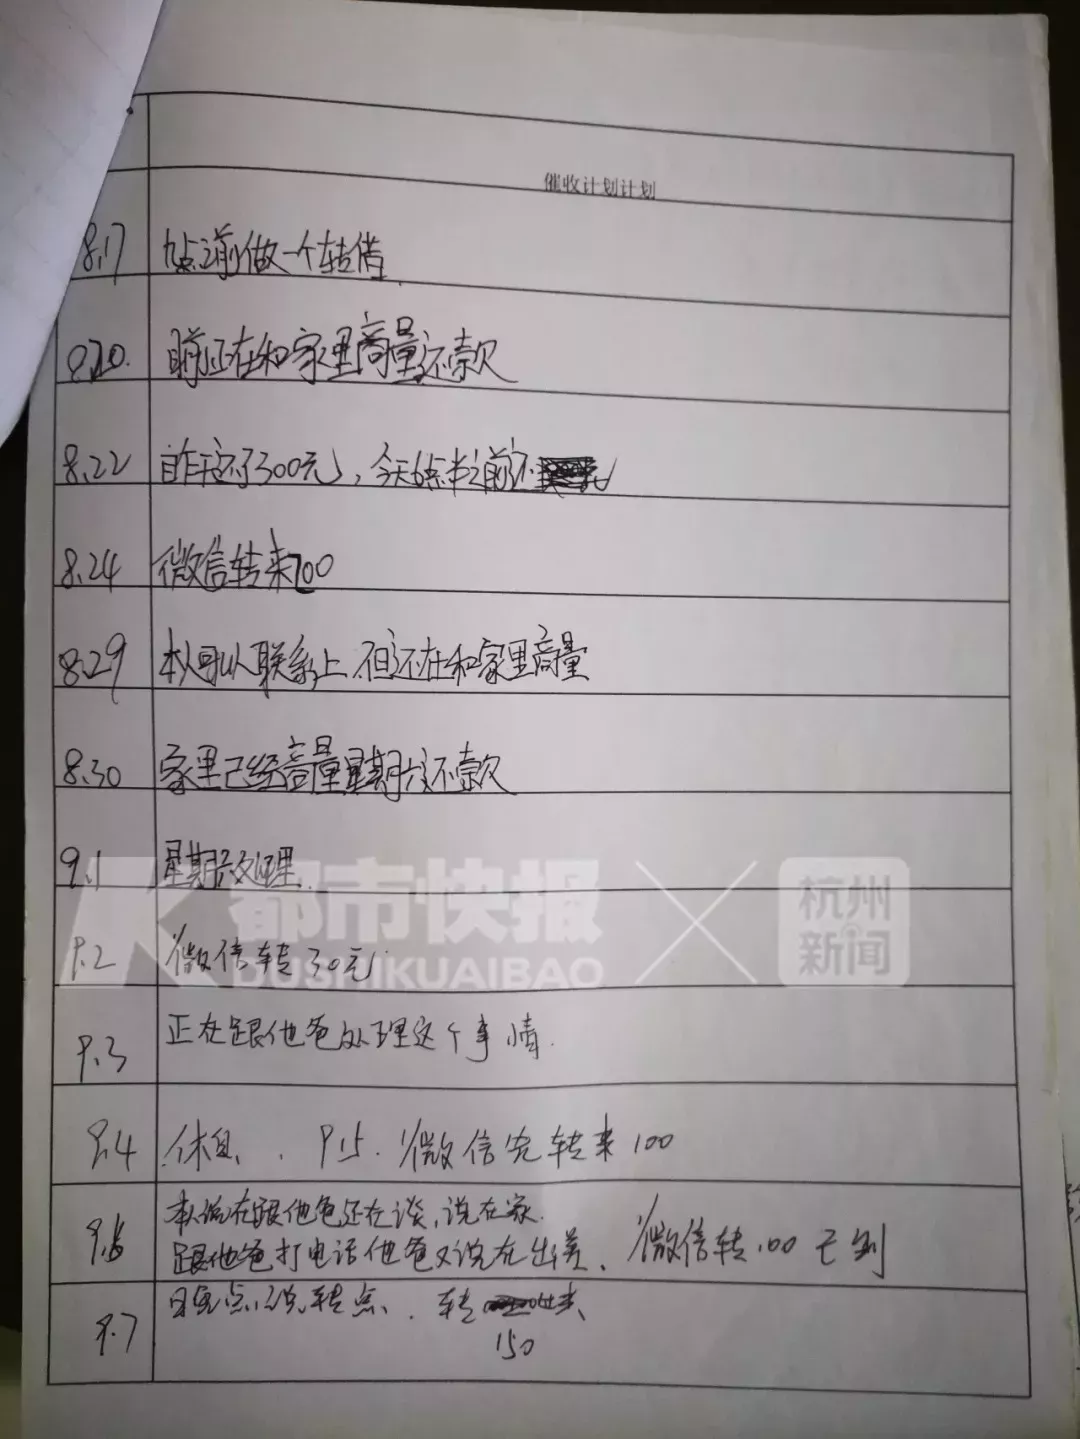 催收计划计划
8.17 九点之前做一个转借
8.20. 目前正在和家里商量还款
8.22 昨天还了300元，今天6点半之前还
8.24 微信转来700
8.29 本人可以联系上，但还在和家里商量
8.30 家里已经商量星期六还款
9.1 星期六处理.
9.2 微信转30元
9.3 正在跟他爸处理这个事情.
9.4 休息、. 9.15. 微信先转来100
9.6 本人说在跟他爸还在谈，说在家.
跟他爸打电话他爸又说在出差、微信转100已到
9.7 转 来
150
都市快报
DUSHIKUAIBAO
杭州
新闻